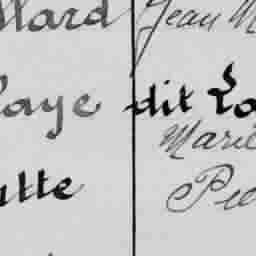 llard Jean M
aye dit La
Marie
utte Pie